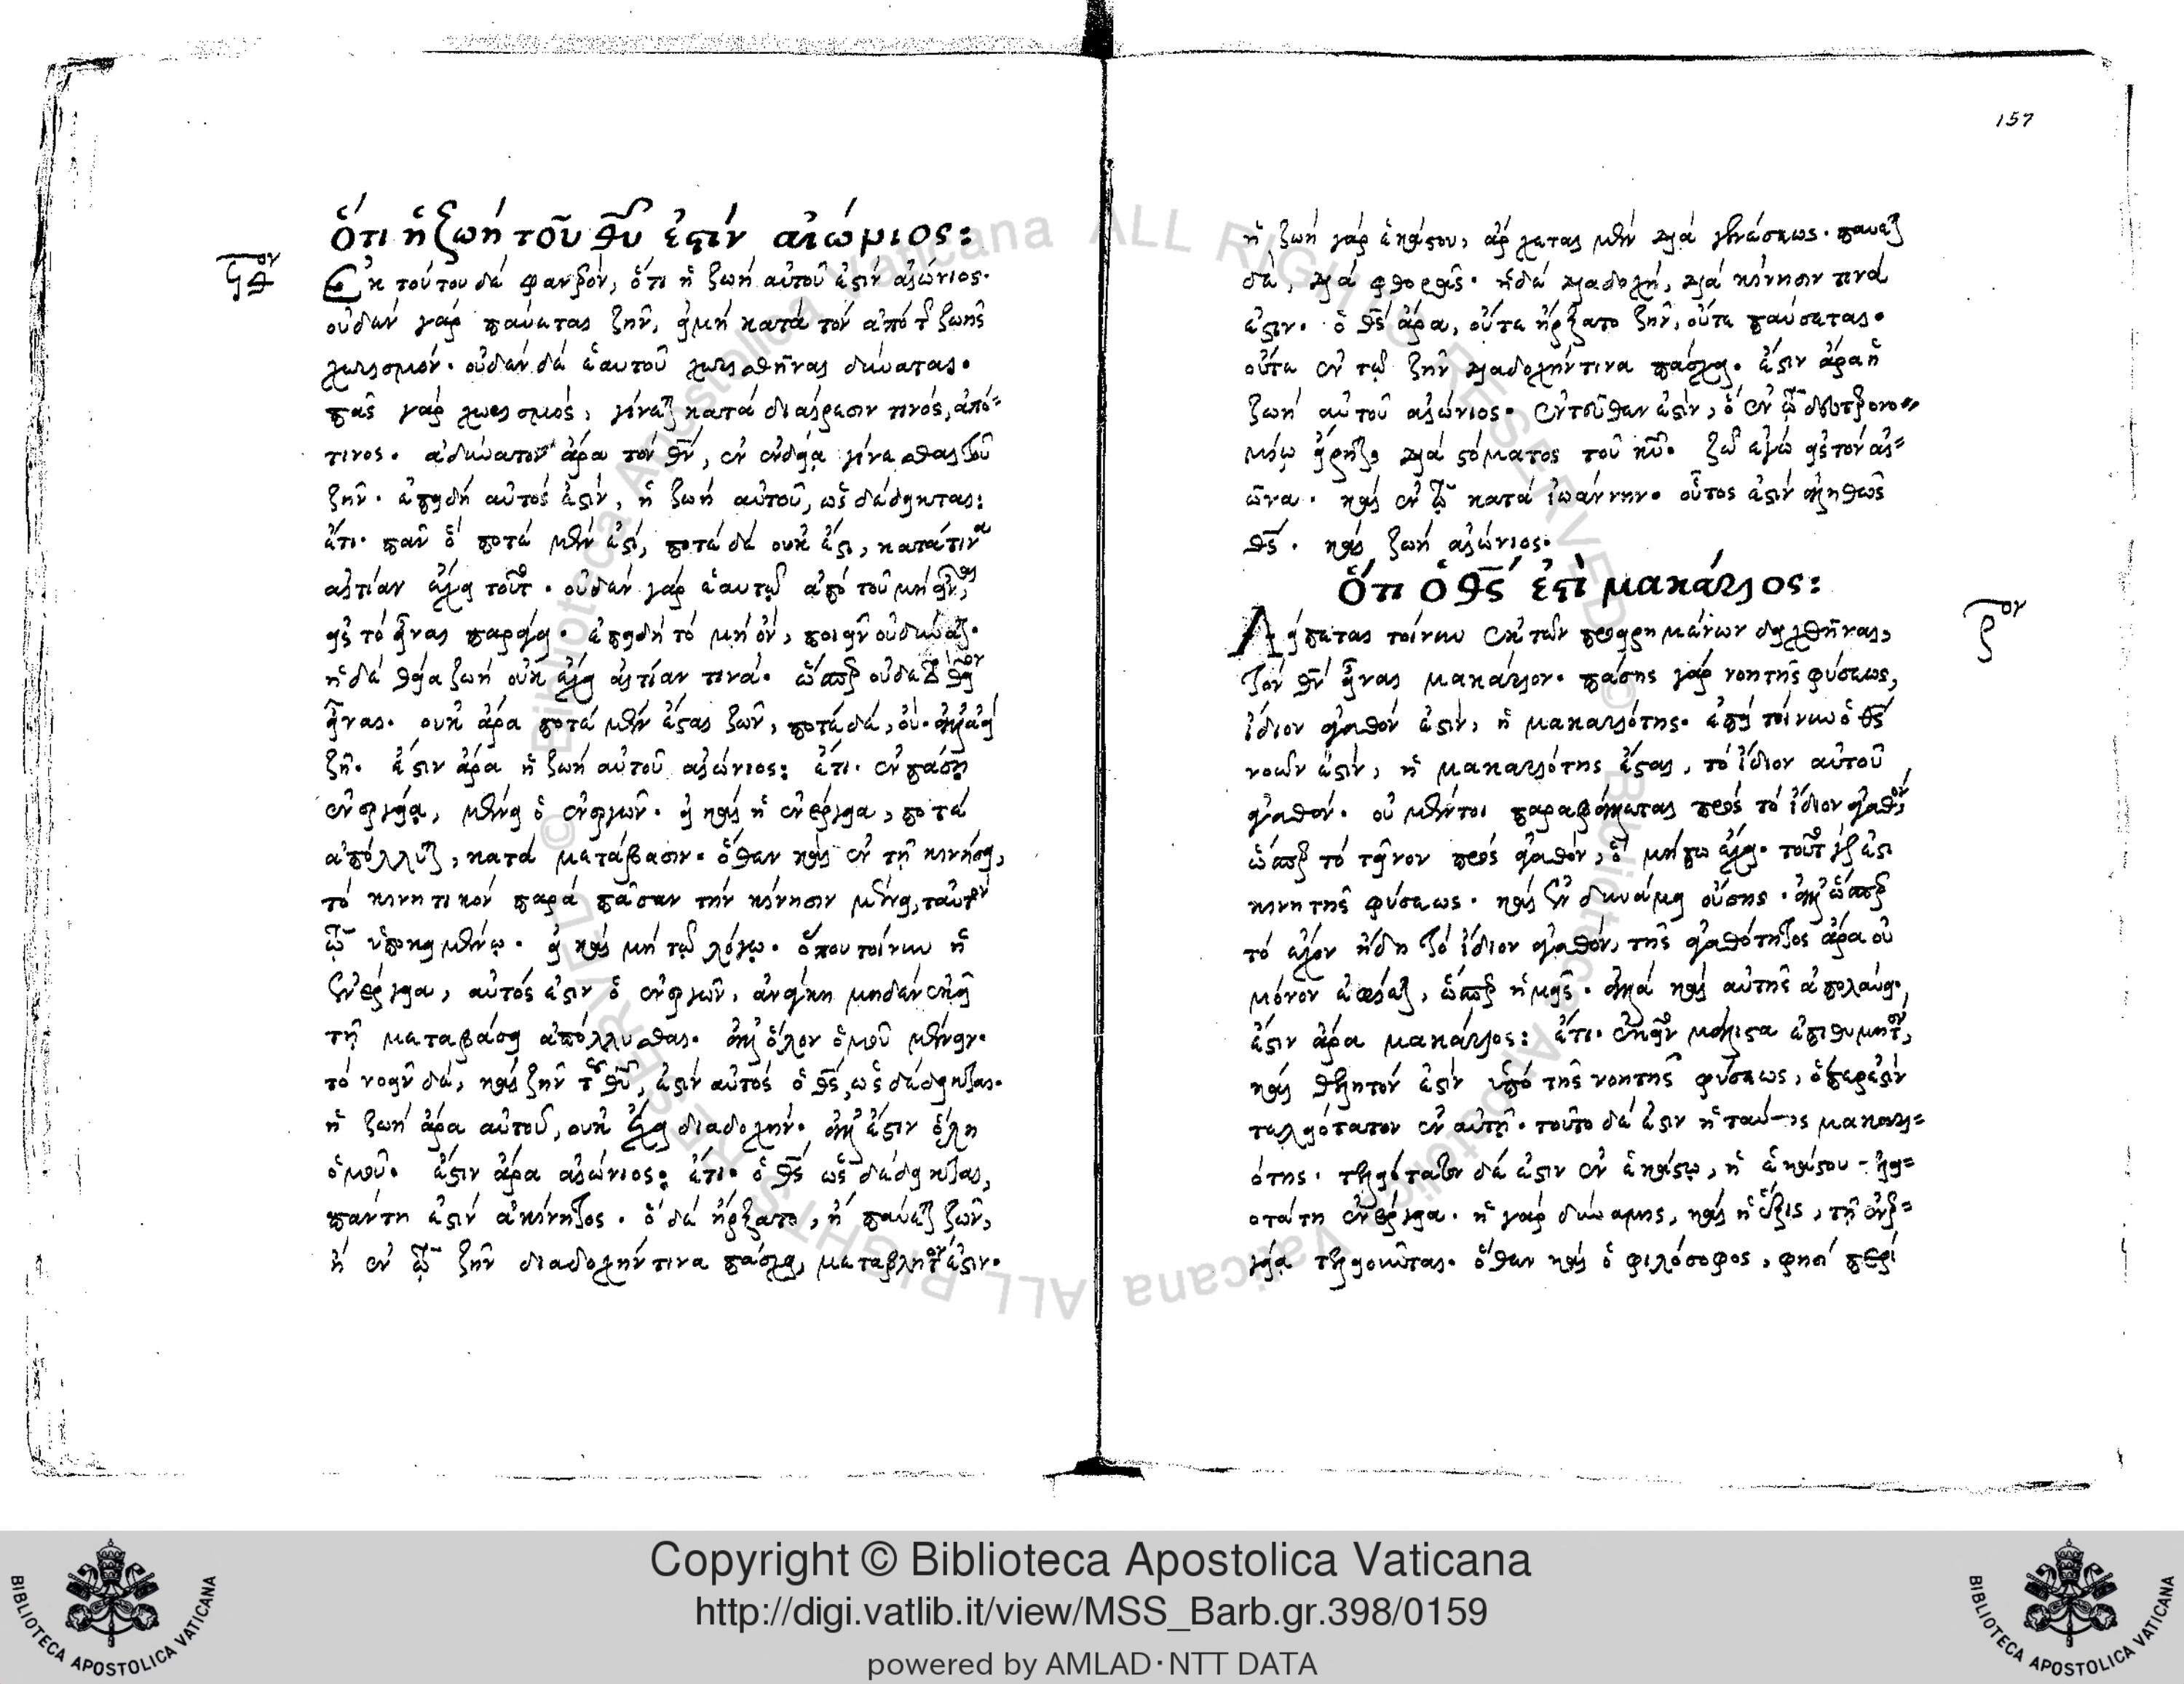 157
Ὅτι ἡ ζωὴ τοῦ θυ ἐστὶν αἰώνιος:
ϟθον
Ἐκ τούτου δὲ φανερόν, ὅτι ἡ ζωὴ αὐτοῦ ἐστὶν αἰώνιος.
οὐδὲν γὰρ παύεται ζῆν, εἰμὴ κατὰ τὸν ἀπὸ τῆς ζωῆς
χωρισμόν. οὐδὲν δὲ ἑαυτοῦ χωρισθῆναι δύναται.
πᾶς γὰρ χωρισμός, γίνεται κατὰ διαίρεσιν τινός, ἀπό=
τινος. ἀδύνατον ἄρα τὸν θν, ἐν ἐνδείᾳ γίνεσθαι τοῦ
ζῆν. ἐπειδὴ αὐτός ἐστιν, ἡ ζωὴ αὐτοῦ, ὡς δέδεικται:
ἔτι. πᾶν ὃ ποτὲ μὲν ἐστί, ποτὲ δὲ οὐκ ἔστι, κατά τινα
αἰτίαν ἔχει τοῦτο. οὐδὲν γὰρ ἑαυτῷ ἀπὸ τοῦ μὴ εἶναι,
εἰς τὸ εἶναι παράγει. ἐπειδὴ τὸ μὴ ὄν, ποιεῖν οὐ δύναται.
ἡ δὲ θεία ζωὴ οὐκ ἔχει αἰτίαν τινά. ὥσπερ οὐδὲ τὸ θεῖον
εἶναι. οὐκ ἄρα ποτὲ μὲν ἔσται ζῶν, ποτὲ δέ, οὔ. ἀλλ' ἀεὶ
ζῇ. ἔστιν ἄρα ἡ ζωὴ αὐτοῦ αἰώνιος: ἔτι. ἐν πάσῃ
ἐνεργείᾳ, μένει ὁ ἐνεργῶν. εἰ καὶ ἡ ἐνέργεια, ποτὲ
ἀπόλλυται, κατὰ μετάβασιν. ὅθεν καὶ ἐν τῇ κινήσει,
τὸ κινητικὸν παρὰ πᾶσαν τὴν κίνησιν μένει, ταὐτὸν
τῷ ὑποκειμένῳ. εἰ καὶ μὴ τῷ λόγῳ. ὅπου τοίνυν ἡ
ἐνέργεια, αὐτός ἐστιν ὁ ἐνεργῶν, ἀνάγκη μηδὲν ἐκεῖ
τῇ μεταβάσει ἀπόλλυσθαι. ἀλλ' ὅλον ὁμοῦ μένειν.
τὸ νοεῖν δέ, καὶ ζῆν τοῦ θυ, ἐστὶν αὐτὸς ὁ θς, ὡς δέδεικται.
ἡ ζωὴ ἄρα αὐτοῦ, οὐκ ἔχει διαδοχήν. ἀλλ' ἔστιν ὅλη
ὁμοῦ. ἔστιν ἄρα αἰώνιος: ἔτι. ὁ θς ὡς δέδεικται,
πάντη ἐστὶν ἀκίνητος. ὃ δὲ ἤρξατο, ἢ παύεται ζῶν,
ἢ ἐν τῷ ζῆν διαδοχήν τινα πάσχει, μεταβλητόν ἐστιν.
ἡ ζωὴ γὰρ ἑκάστου, ἄρχεται μὲν διὰ γενέσεως. παύεται
δέ, διὰ φθορᾶς. ἡ δὲ διαδοχή, διὰ κίνησίν τινα
ἐστιν. ὁ θς ἄρα, οὔτε ἤρξατο ζῆν, οὔτε παύσεται.
οὔτε ἐν τῷ ζῆν διαδοχήν τινα πάσχει. ἔστιν ἄρα ἡ
ζωὴ αὐτοῦ αἰώνιος. ἐντεῦθέν ἐστιν, ὃ ἐν τῷ δευτερονο=
μίῳ εἴρηται διὰ στόματος τοῦ κυ. ζῶ ἐγὼ εἰς τὸν αἰ=
ῶνα. καὶ ἐν τῷ κατὰ ἰωάννην. οὗτος ἐστὶν ἀληθῶς
θς. καὶ ζωὴ αἰώνιος.
Ὅτι ὁ θς ἐστὶ μακάριος:
ρον
Λείπεται τοίνυν ἐκ τῶν προειρημένων δειχθῆναι,
τὸν θν εἶναι μακάριον. πάσης γὰρ νοητῆς φύσεως,
ἴδιον ἀγαθόν ἐστιν, ἡ μακαριότης. ἐπεὶ τοίνυν ὁ θς
νοῶν ἐστίν, ἡ μακαριότης ἔσται, τὸ ἴδιον αὐτοῦ
ἀγαθόν. οὐ μέντοι παραβάλλεται πρὸς τὸ ἴδιον ἀγαθὸν
ὥσπερ τὸ τεῖνον πρὸς ἀγαθόν, ὃ μήπω ἔχει. τοῦτο γάρ ἐστι
κινητῆς φύσεως. καὶ ἐν δυνάμει οὔσης. ἀλλ' ὥσπερ
τὸ ἔχον ἤδη τὸ ἴδιον ἀγαθόν, τῆς ἀγαθότητος ἄρα οὐ
μόνον ἐφίεται, ὥσπερ ἡμεῖς. ἀλλὰ καὶ αὐτῆς ἀπολαύει.
ἔστιν ἄρα μακάριος: ἔτι. ἐκεῖνο μάλιστα ἐπιθυμητόν,
καὶ θελητόν ἐστιν ὑπὸ τῆς νοητῆς φύσεως, ὅπερ ἐστὶ
τελειότατον ἐν αὐτῇ. τοῦτο δέ ἐστιν ἡ ταύτης μακαρι=
ότης. τελειότατον δέ ἐστιν ἐν ἑκάστῳ, ἡ ἑκάστου τελει=
οτάτη ἐνέργεια. ἡ γὰρ δύναμις, καὶ ἡ ἕξις, τῇ ἐνερ=
γείᾳ τελειοῦται. ὅθεν καὶ ὁ φιλόσοφος, φησὶ περὶ
Copyright © Biblioteca Apostolica Vaticana
http://digi.vatlib.it/view/MSS_Barb.gr.398/0159
powered by AMLAD·NTT DATA